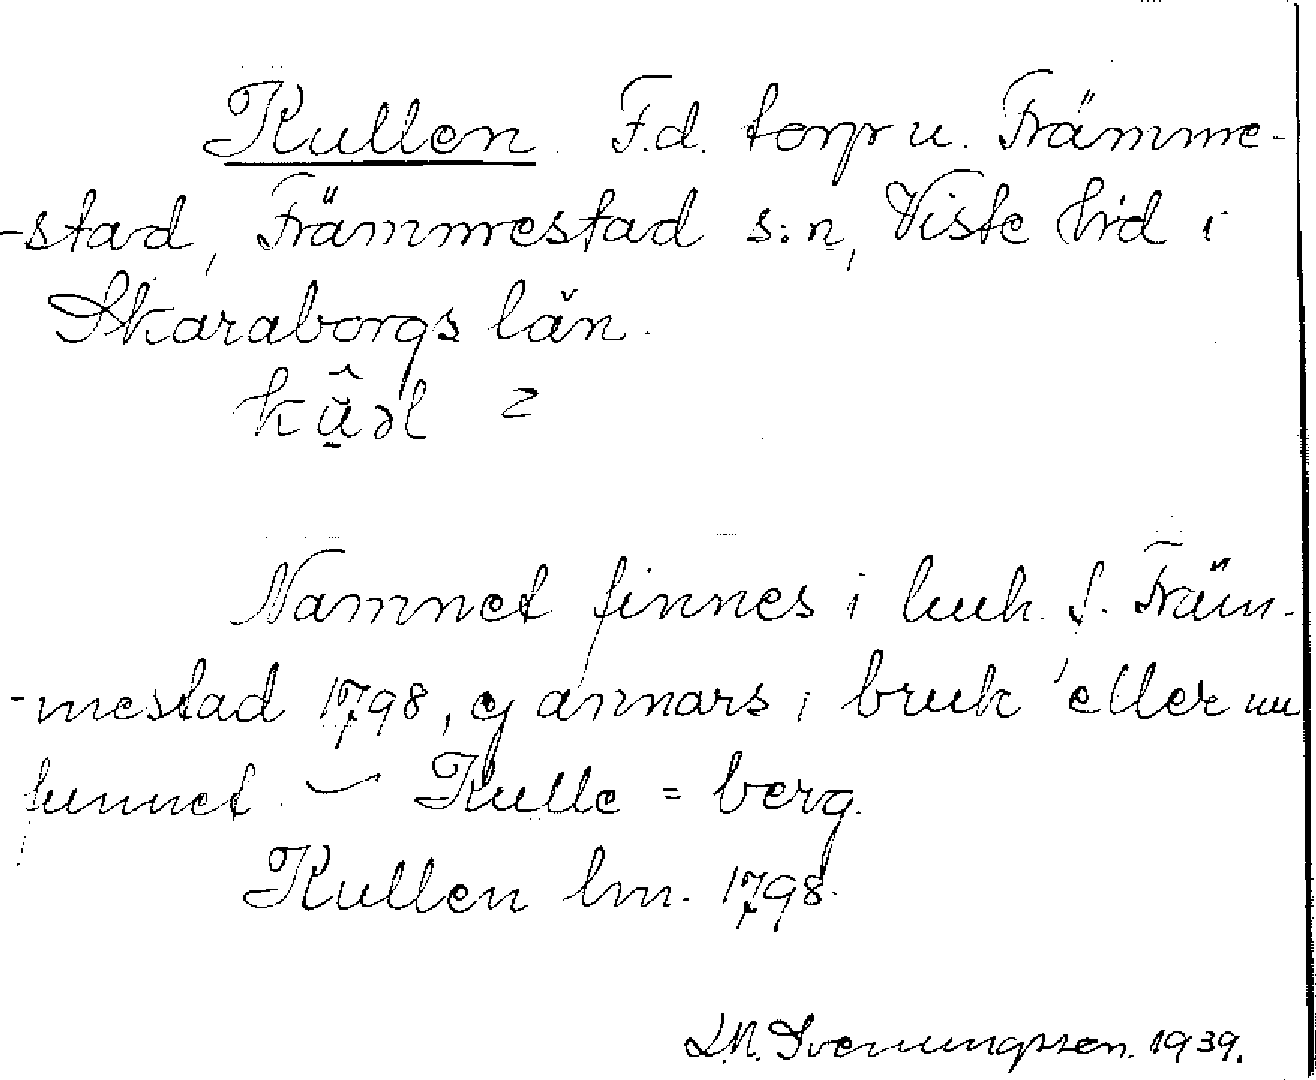 Kullen. F.d. torp u. Främme-
-stad, Främmestad s:n, Viste hrd i
Skaraborgs län.
Namnet finnes i f. Främ-
-mestad 1798, ej annars i bruk eller nu
funnet. – Kulle = berg.
Kullen lm. 1798.
Svenungsson. 1939.